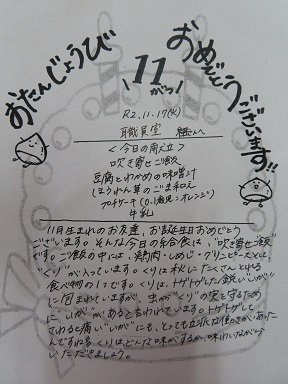 おたんじょうび
11がつ
おめでとうございます!!
R2.11.17(火)
職員室
<今日の献立>
吹き寄せご飯
豆腐とわかめの味噌汁
ほうれん草のごま和え
プチケーキ(0.1歳児=オレンジ)
牛乳
11月生まれのお友達、お誕生日おめでとう
ございます。そんな今日の給食は、"吹き寄せご飯"
です。ご飯の中には、鶏肉・しめじ・グリンピース
"くり"が入っています。くりは秋にたくさんとれる
食べ物の1つです。くりは、トゲトゲした鋭い"いが"
に包まれていますが、虫が"くり"の実を守るため
に"いが"があると言われています。トゲトゲして
さわると痛い"いが"にも、とっても立派な働きがあった
んですね。くりはどんな味がするか、味わいながら
いただきましょう。